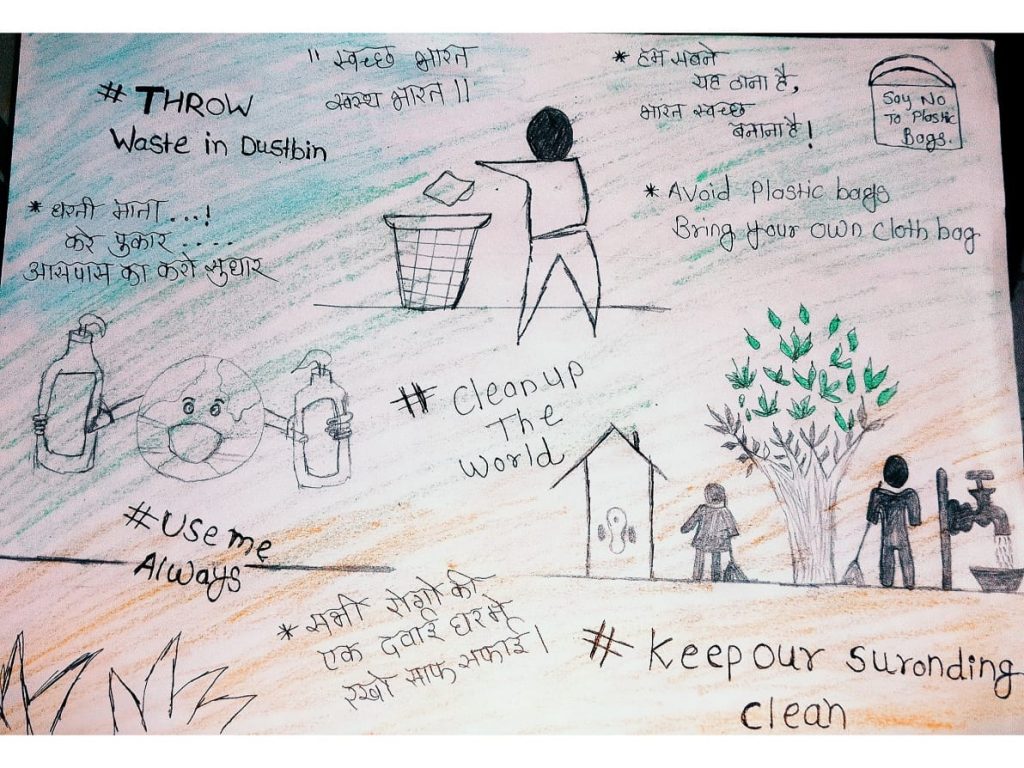 # THROW
Waste in Dustbin
" स्वच्छ भारत
स्वस्थ भारत "
* हम सबने
यह ठाना है,
भारत स्वच्छ
बनाना है !
Say No
To Plastic
Bags.
* Avoid Plastic bags
Bring your own cloth bag
* धरती माता ...!
करे पुकार ....
आसपास का करो सुधार
# Clean up
The
World
# Use me
Always
* सभी रोगो की
एक दवाई घर मे
रखो साफ सफाई।
# Keep our suronding
clean